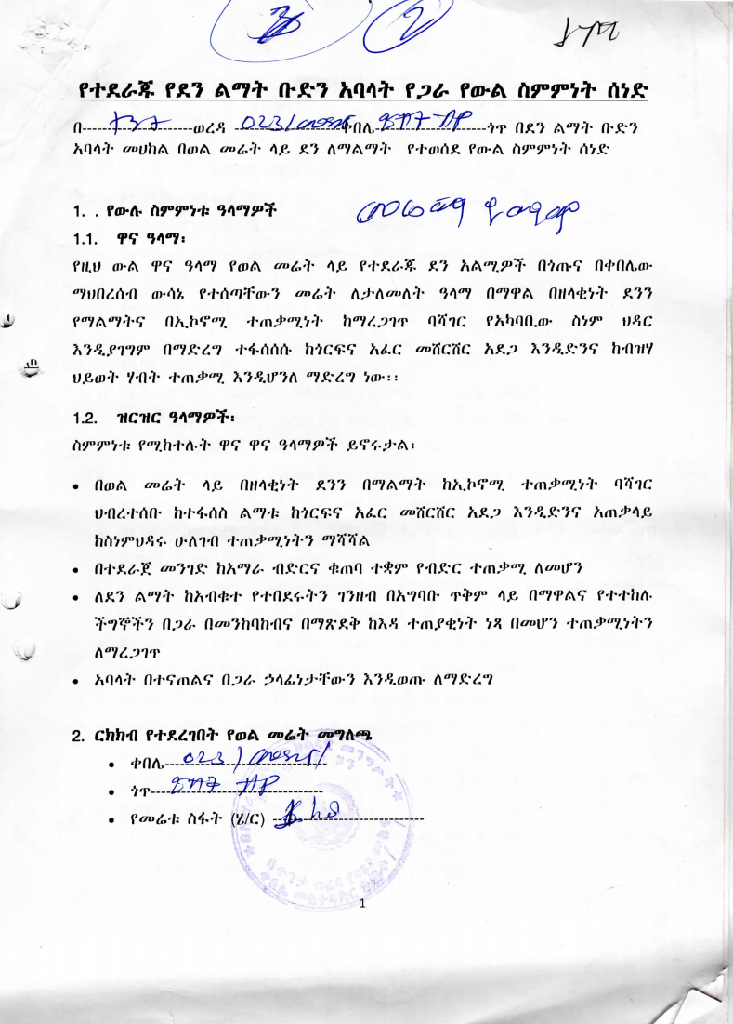 የተደራጁ የደን ልማት ቡድን አባላት የጋራ የውል ስምምነት ሰነድ
በ--------------------ወረዳ 023/ ቀበሌ--------------------ጎጥ በደን ልማት ቡድን
አባላት መሀከል በወል መሬት ላይ ደን ለማልማት የተወሰደ የውል ስምምነት ሰነድ
1. . የውሉ ስምምነቱ ዓላማዎች
1.1. ዋና ዓላማ፡
የዚህ ውል ዋና ዓላማ የወል መሬት ላይ የተደራጁ ደን አልሚዎች በጎጡና በቀበሌው
ማህበረሰብ ውሳኔ የተሰጣቸውን መሬት ለታለመለት ዓላማ በማዋል በዘላቂነት ደንን
የማልማትና በኢኮኖሚ ተጠቃሚነት ከማረጋገጥ ባሻገር የአካባቢው ስነም ህዳር
እንዲያገግም በማድረግ ተፋሰሰሱ ከጎርፍና አፈር መሸርሸር አደጋ እንዲድንና ከብዝሃ
ህይወት ሃብት ተጠቃሚ እንዲሆንለ ማድረግ ነው፡፡
1.2. ዝርዝር ዓላማዎች፡
ስምምነቱ የሚከተሉት ዋና ዋና ዓላማዎች ይኖሩታል፡
• በወል መሬት ላይ በዘላቂነት ደንን በማልማት ከኢኮኖሚ ተጠቃሚነት ባሻገር
ህብረተሰቡ ከተፋሰስ ልማቱ ከጎርፍና አፈር መሸርሸር አደጋ እንዲድንና አጠቃላይ
ከስነምህዳሩ ሁለገብ ተጠቃሚነትን ማሻሻል
• በተደራጀ መንገድ ከአማራ ብድርና ቁጠባ ተቋም የብድር ተጠቃሚ ለመሆን
• ለደን ልማት ከአብቁተ የተበደሩትን ገንዘብ በአግባቡ ጥቅም ላይ በማዋልና የተተከሉ
ችግኞችን በጋራ በመንከባከብና በማጽደቅ ከእዳ ተጠያቂነት ነጻ በመሆን ተጠቃሚነትን
ለማረጋገጥ
• አባላት በተናጠልና በጋራ ኃላፊነታቸውን እንዲወጡ ለማድረግ
2. ርክክብ የተደረገበት የወል መሬት መግለጫ
• ቀበሌ 023 /
• ጎጥ--------------------
• የመሬቱ ስፋት (ሄ/ር) --------------------
1